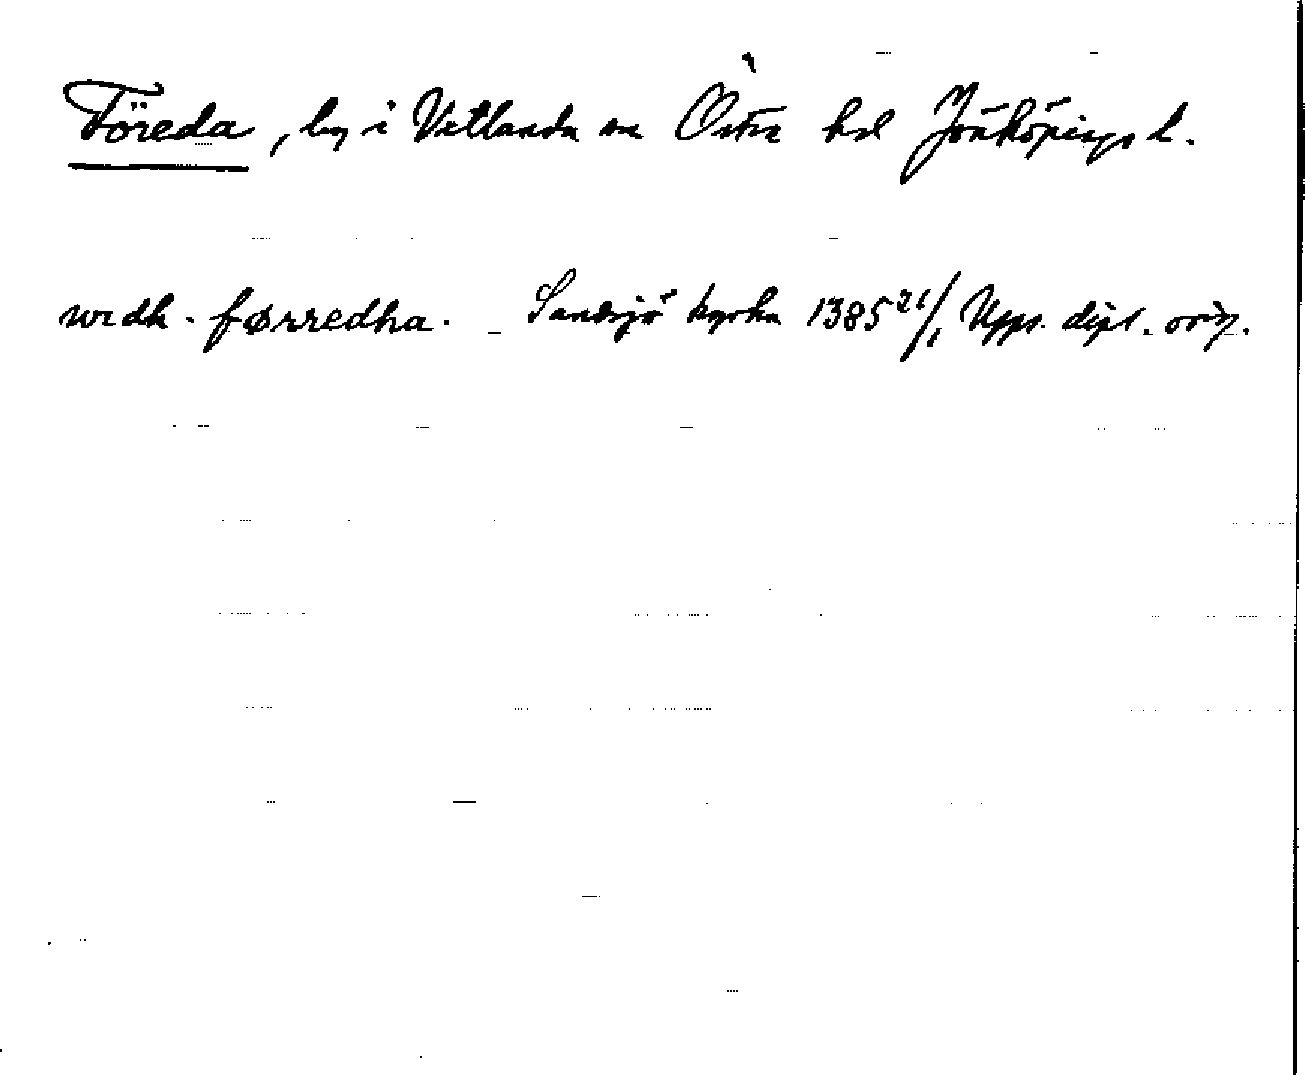 Föreda, by i Vetlanda sn Östra hd Jönköpings l.
widh. førredha. _ Sandsjö kyrka 1385 21/1, Upps. dipl. orig.